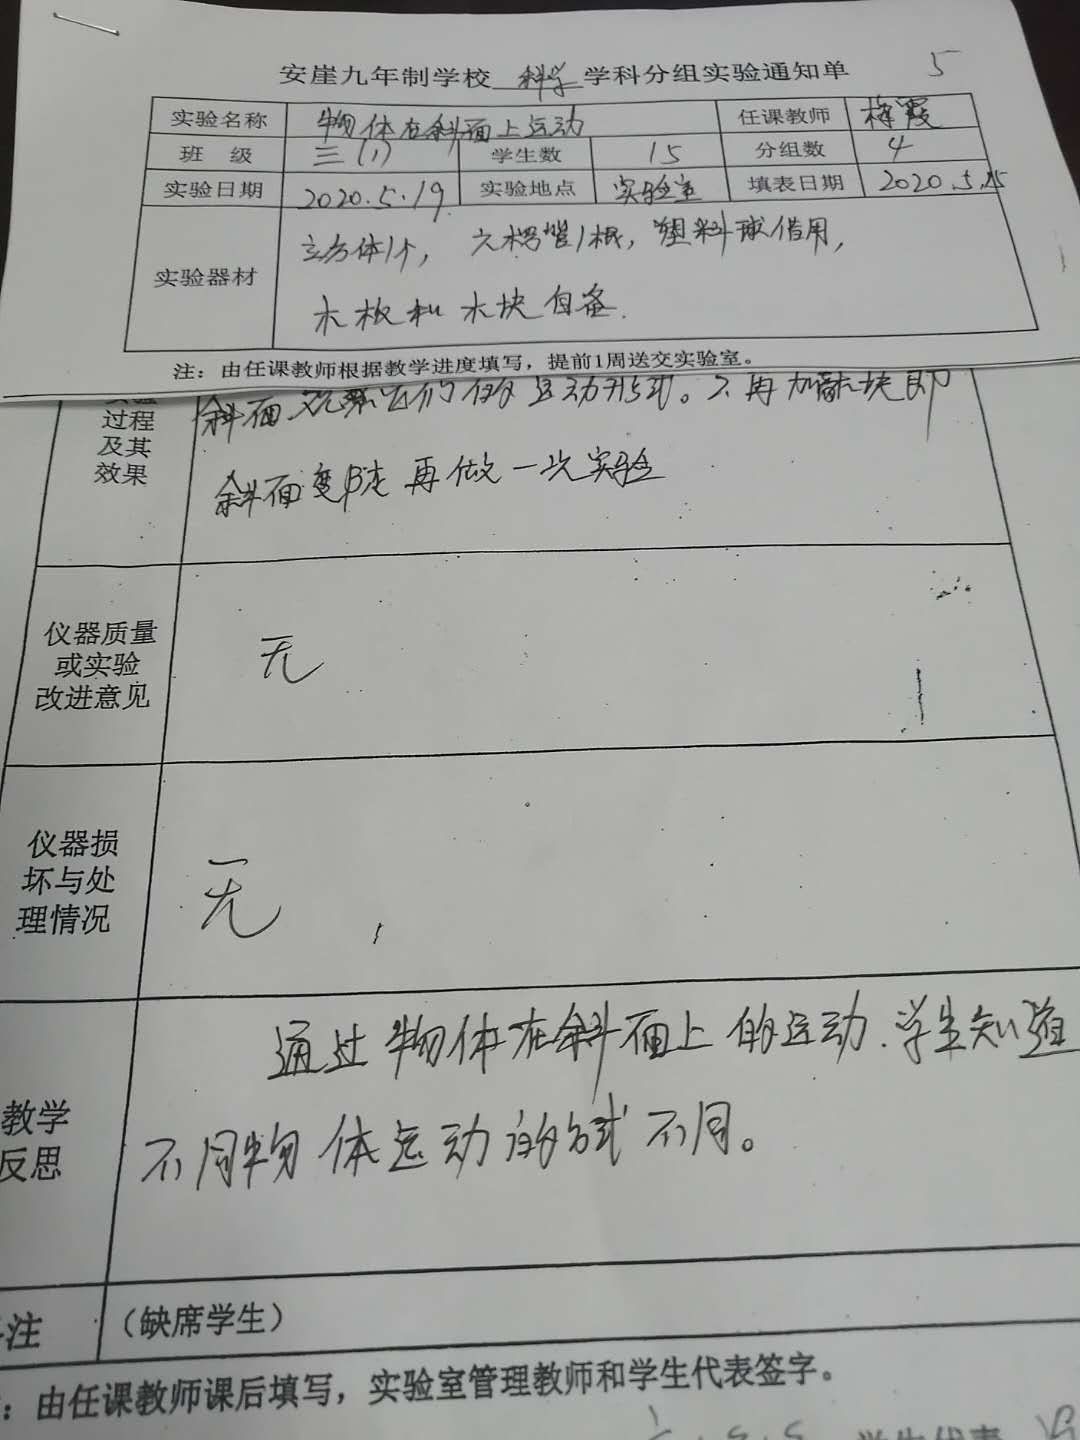 5
安崖九年制学校 科学 学科分组实验通知单
实验名称 物体在斜面上运动 任课教师 梅霞
班 级 三(1) 学生数 15 分组数 4
实验日期 2020.5.19 实验地点 实验室 填表日期 2020.5.15
实验器材
立方体1个, 六楞管1根, 塑料球借用,
木板和木块自备.
注：由任课教师根据教学进度填写，提前1周送交实验室。
过程
及其
效果
斜面观察它们的运动形式。2.再加木块即
斜面变陡再做一次实验
仪器质量
或实验
改进意见
无
仪器损
坏与处
理情况
无
教学
反思
通过物体在斜面上的运动.学生知道
不同物体运动的方式不同。
注 (缺席学生)
：由任课教师课后填写，实验室管理教师和学生代表签字。
学生代表